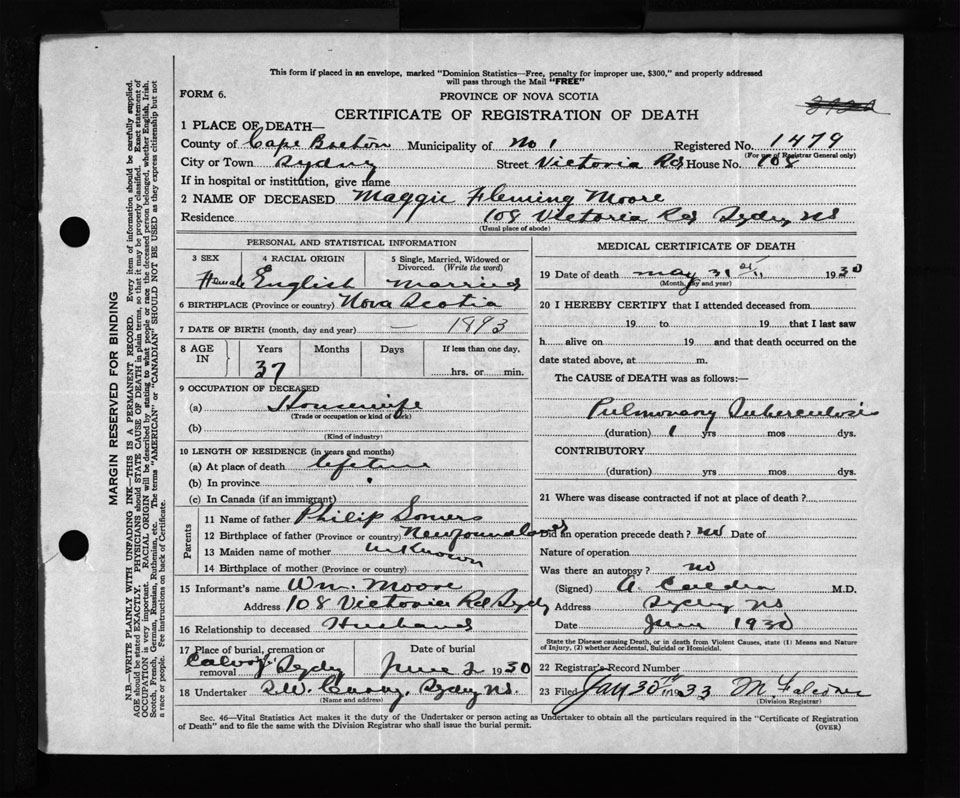 This form if placed in an envelope, marked "Dominion Statistics—Free, penalty for improper use, $300," and properly addressed
will pass through the Mail "FREE"
FORM 6.
PROVINCE OF NOVA SCOTIA
CERTIFICATE OF REGISTRATION OF DEATH
1 PLACE OF DEATH—
County of Cape Breton Municipality of No 1 Registered No. 1479
(For use of Registrar General only)
City or Town Sydney Street Victoria Rd House No. 108
If in hospital or institution, give name
2 NAME OF DECEASED Maggie Fleming Moore
Residence 108 Victoria Rd Sydney NS
(Usual place of abode)
PERSONAL AND STATISTICAL INFORMATION
3 SEX 4 RACIAL ORIGIN 5 Single, Married, Widowed or
Divorced. (Write the word)
Female English Married
6 BIRTHPLACE (Province or country) Nova Scotia
7 DATE OF BIRTH (month, day and year) — 1893
8 AGE IN Years Months Days If less than one day,
37 hrs. or min.
9 OCCUPATION OF DECEASED
(a) Housewife
(Trade or occupation or kind of work)
(b)
(Kind of industry)
10 LENGTH OF RESIDENCE (in years and months)
(a) At place of death lifetime
(b) In province
(c) In Canada (if an immigrant)
Parents
11 Name of father Philip Somers
12 Birthplace of father (Province or country) Newfoundland
13 Maiden name of mother unknown
14 Birthplace of mother (Province or country)
15 Informant's name Wm. Moore
Address 108 Victoria Rd Sydy
16 Relationship to deceased Husband
17 Place of burial, cremation or removal Date of burial
Sydy June 2 1930
18 Undertaker Sydney NS.
(Name and address)
MEDICAL CERTIFICATE OF DEATH
19 Date of death May 31st 1930
(Month, day and year)
20 I HEREBY CERTIFY that I attended deceased from
19 to 19 that I last saw
h alive on 19 and that death occurred on the
date stated above, at m.
The CAUSE of DEATH was as follows:—
Pulmonary Tuberculosis
(duration) 1 yrs mos dys.
CONTRIBUTORY.
(duration) yrs mos dys.
21 Where was disease contracted if not at place of death ?
Did an operation precede death ? No Date of
Nature of operation
Was there an autopsy ? No
(Signed) A. M.D.
Address Sydney NS
Date June 1930
State the Disease causing Death, or in death from Violent Causes, state (1) Means and Nature
of Injury, (2) whether Accidental, Suicidal or Homicidal.
22 Registrar's Record Number
23 Filed Jan 30th 1933 M Falconer
(Division Registrar)
Sec. 46—Vital Statistics Act makes it the duty of the Undertaker or person acting as Undertaker to obtain all the particulars required in the "Certificate of Registration
of Death" and to file the same with the Division Registrar who shall issue the burial permit.
(OVER)
MARGIN RESERVED FOR BINDING
N.B.—WRITE PLAINLY WITH UNFADING INK—THIS IS A PERMANENT RECORD. Every item of information should be carefully supplied.
AGE should be stated EXACTLY. PHYSICIANS should STATE CAUSE OF DEATH in plain terms, so that it may be properly classified. Exact statement of
OCCUPATION is very important. RACIAL ORIGIN will be described by stating to what people or race the deceased person belonged, whether English, Irish,
Scotch, French, German, Russian, Ruthenian, etc. The terms "AMERICAN" or "CANADIAN" SHOULD NOT BE USED as they express citizenship but not
a race or people. Fee instructions on back of Certificate.